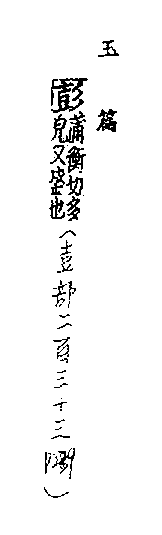 玉篇
彭蒲衡切多
皃又盛也(壴部二百三十三)